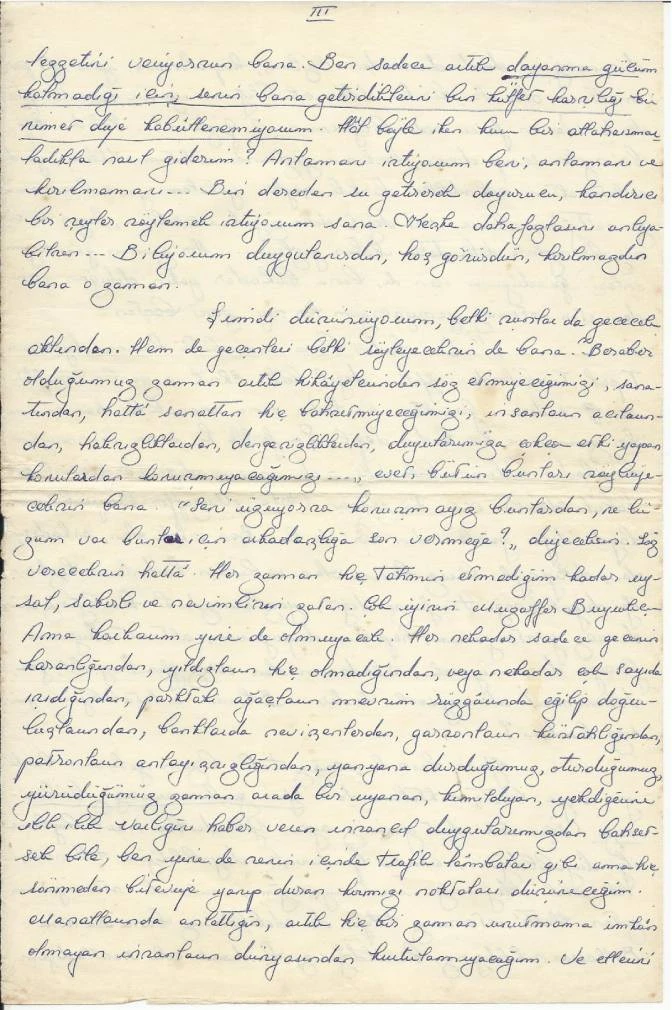 III
lezzetini veriyorsun bana. Ben sadece artık dayanma gücüm
kalmadığı için, senin bana getirdiklerini bir külfet karşılığı bir
nimet diye kabullenemiyorum. Hâl böyle iken kuru bir Allahaısmar-
ladıkla nasıl giderim? Anlamanı istiyorum beni, anlamanı ve
kırılmamanı... Bin dereden su getirerek doyurucu, kandırıcı
bir şeyler söylemek istiyorum sana. Keşke daha fazlasını anlıya-
bilsen... Biliyorum duygulanırdın, hoş görürdün, kırılmazdın
bana o zaman.
Şimdi düşünüyorum, belki şunlar da geçecek
aklından. Hem de geçenleri belki söyleyeceksin de bana. "Beraber
olduğumuz zaman artık hikâyelerinden söz etmiyeceğimizi, sana-
tından, hattâ sanattan hiç bahsetmiyeceğimizi, insanların acıların-
dan, haksızlıklardan, dengesizliklerden, duyularımıza çokca etki yapan
konulardan konuşmıyacağımızı...," evet bütün bunları söyliye-
ceksin bana. "Seni üzüyorsa konuşmayız bunlardan, ne lü-
zum var bunlar için arkadaşlığa son vermeğe?" diyeceksin. Söz
vereceksin hattâ. Her zaman hiç tahmin etmediğim kadar uy-
sal, sabırlı ve sevimlisin zaten. Çok iyisin Muzaffer Buyrukçu.
Ama korkarım yine de olmıyacak. Her nekadar sadece gecenin
karanlığından, yıldızların hiç olmadığından, veya nekadar çok sayıda
ışıdığından, parktaki ağaçların mevsim rüzgârında eğilip doğru-
luşlarından, banklarda sevişenlerden, garsonların küstahlığından,
patronların anlayışsızlığından, yanyana durduğumuz, oturduğumuz,
yürüdüğümüz zaman arada bir uyanan, kımıldıyan, yekdiğerine
ılık ılık varlığını haber veren insancıl duygularımızdan bahset-
sek bile, ben yine de senin içinde trafik lâmbaları gibi ama hiç
sönmeden biteviye yanıp duran kırmızı noktaları düşüneceğim.
Masallarında anlattığın, artık hiç bir zaman unutmama imkân
olmayan insanların dünyasından kurtulamıyacağım. Ve ellerini